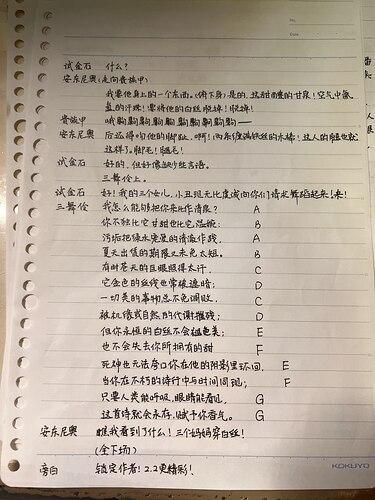 No.
Date
试金石 什么？
安东尼奥（走向贵族甲）
我要他身上的一个东西。（俯下身）是的，这甜而暖的甘泉！空气中氤
氲的汗珠！要将他的白丝脱掉！脱掉！
贵族甲 哦齁齁齁齁齁齁齁齁齁齁——
安东尼奥 啊！两条缠满铁丝的木棒！这人的腿也就
这样了。脚毛！腿毛！
试金石 好的，但好像缺少些言语。
三舞伶上。
试金石 好！我的三个女儿，小丑现无比虔诚向你们请求舞蹈起来！来！
三舞伶 我怎么能够把你来比作清泉？ A
你不独比它甘甜也比它温婉： B
污垢把绿水宠爱的清流作贱， A
夏天出赁的期限又未免太短。 B
有时苍天的巨眼照得太汗， C
它金色的丝线也常被遮暗； D
一切美的事物总不免凋败， C
被机缘或自然的代谢摧残； D
但你永恒的白丝不会褪色美； E
也不会失去你所拥有的甜 F
死神也无法夸口你在他的阴影里环回， E
当你在不朽的诗行中与时间同现； F
只要人类能呼吸，眼睛能看见， G
这首诗就会永存，赋予你香气。 G
安东尼奥 瞧我看到了什么！三个妈妈穿白丝！
（全下场）
旁白 锁定作者！2.2更精彩！
KOKUYO